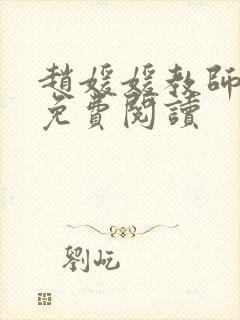 趙媛媛教師
免費閱讀
劉屹